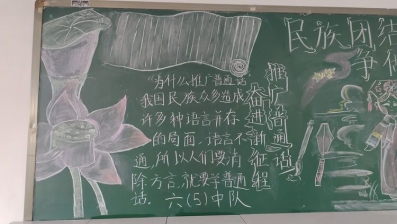 "为什么推广普通话
我国民族众多造成
许多种语言并存
的局面.语言不
通,所以人们要消
除方言,就要学普通
话.
六(5)中队
推广普通话
奋进新征程
民族团结
争做